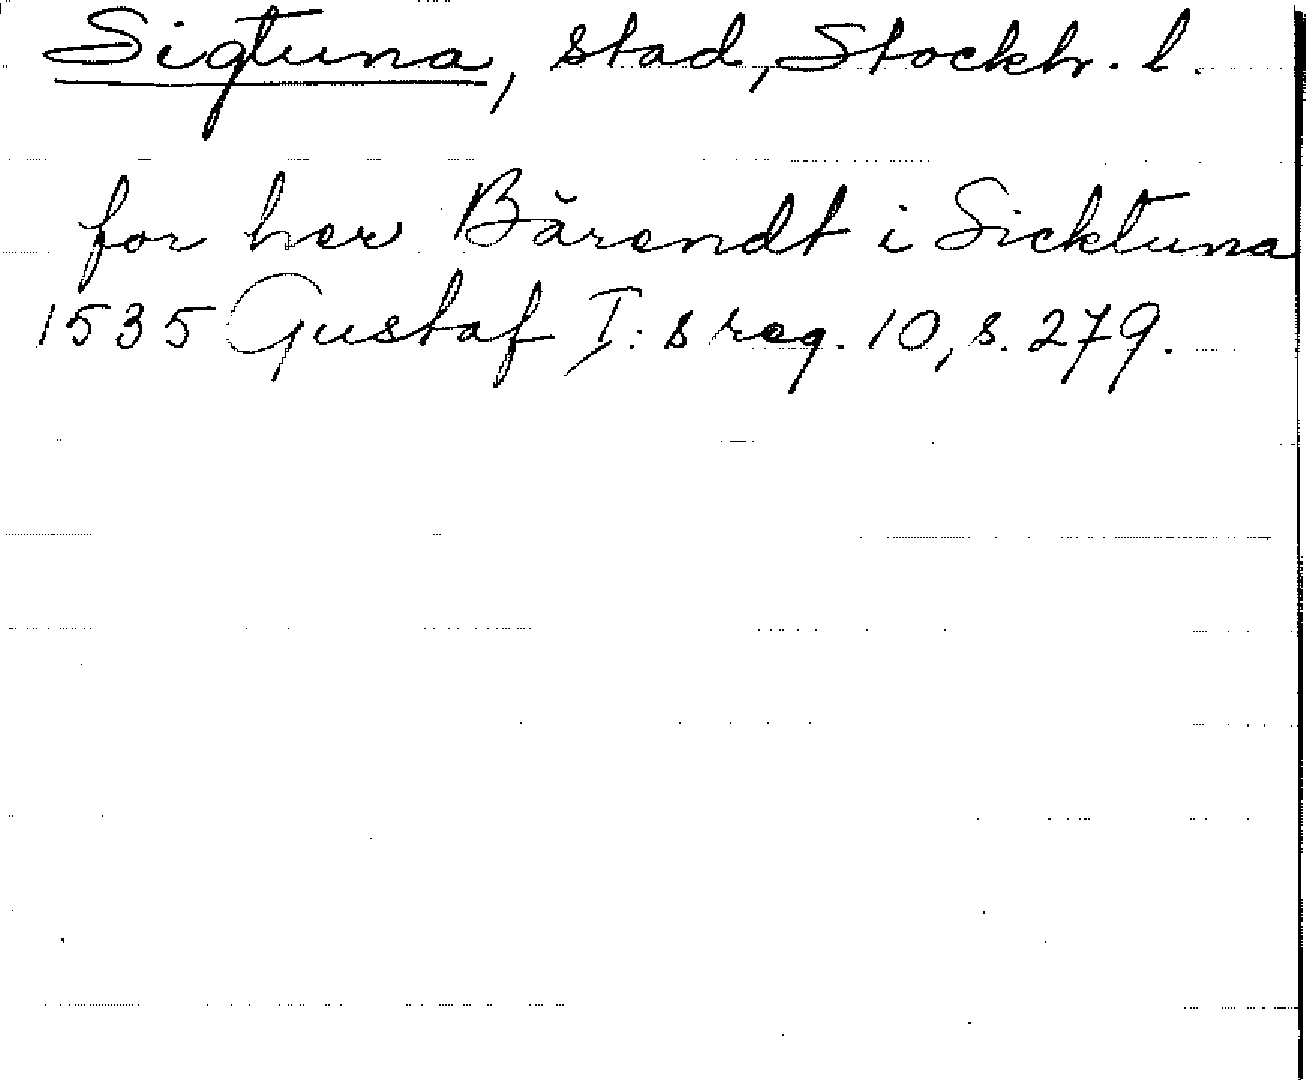 Sigtuna, stad, Stockh. l.
for her Bärendt i Sicktuna
1535 Gustaf I:s reg. 10, s. 279.